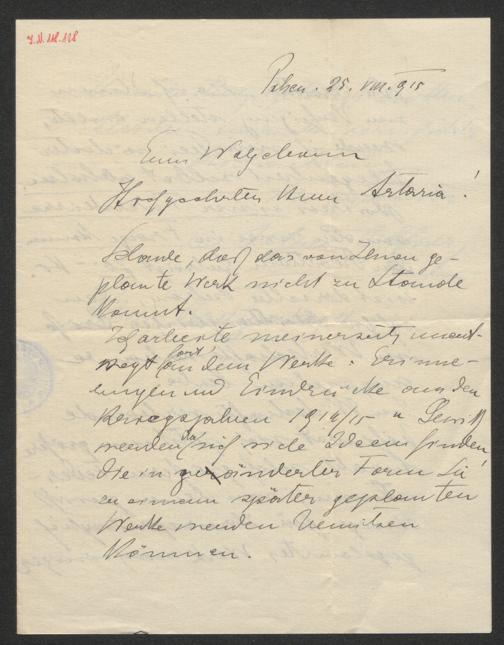 I.N. 118.128
25. VIII. 915
Euer Wohlgeboren
Hochgeehrter Herr Artaria!
Schade, daß das von Ihnen ge-
plante Werk nicht zu Stande
kommt.
Ich arbeite meinerseits unent-
wegt fort an dem Werke. "Erinne-
rungen und Eindrücke aus den
Kriegsjahren 1914/15" Gewiß
werden da sich viele Ideen finden
die in geänderter Form Sie
zu einem später geplanten
Werke werden benützen
können.